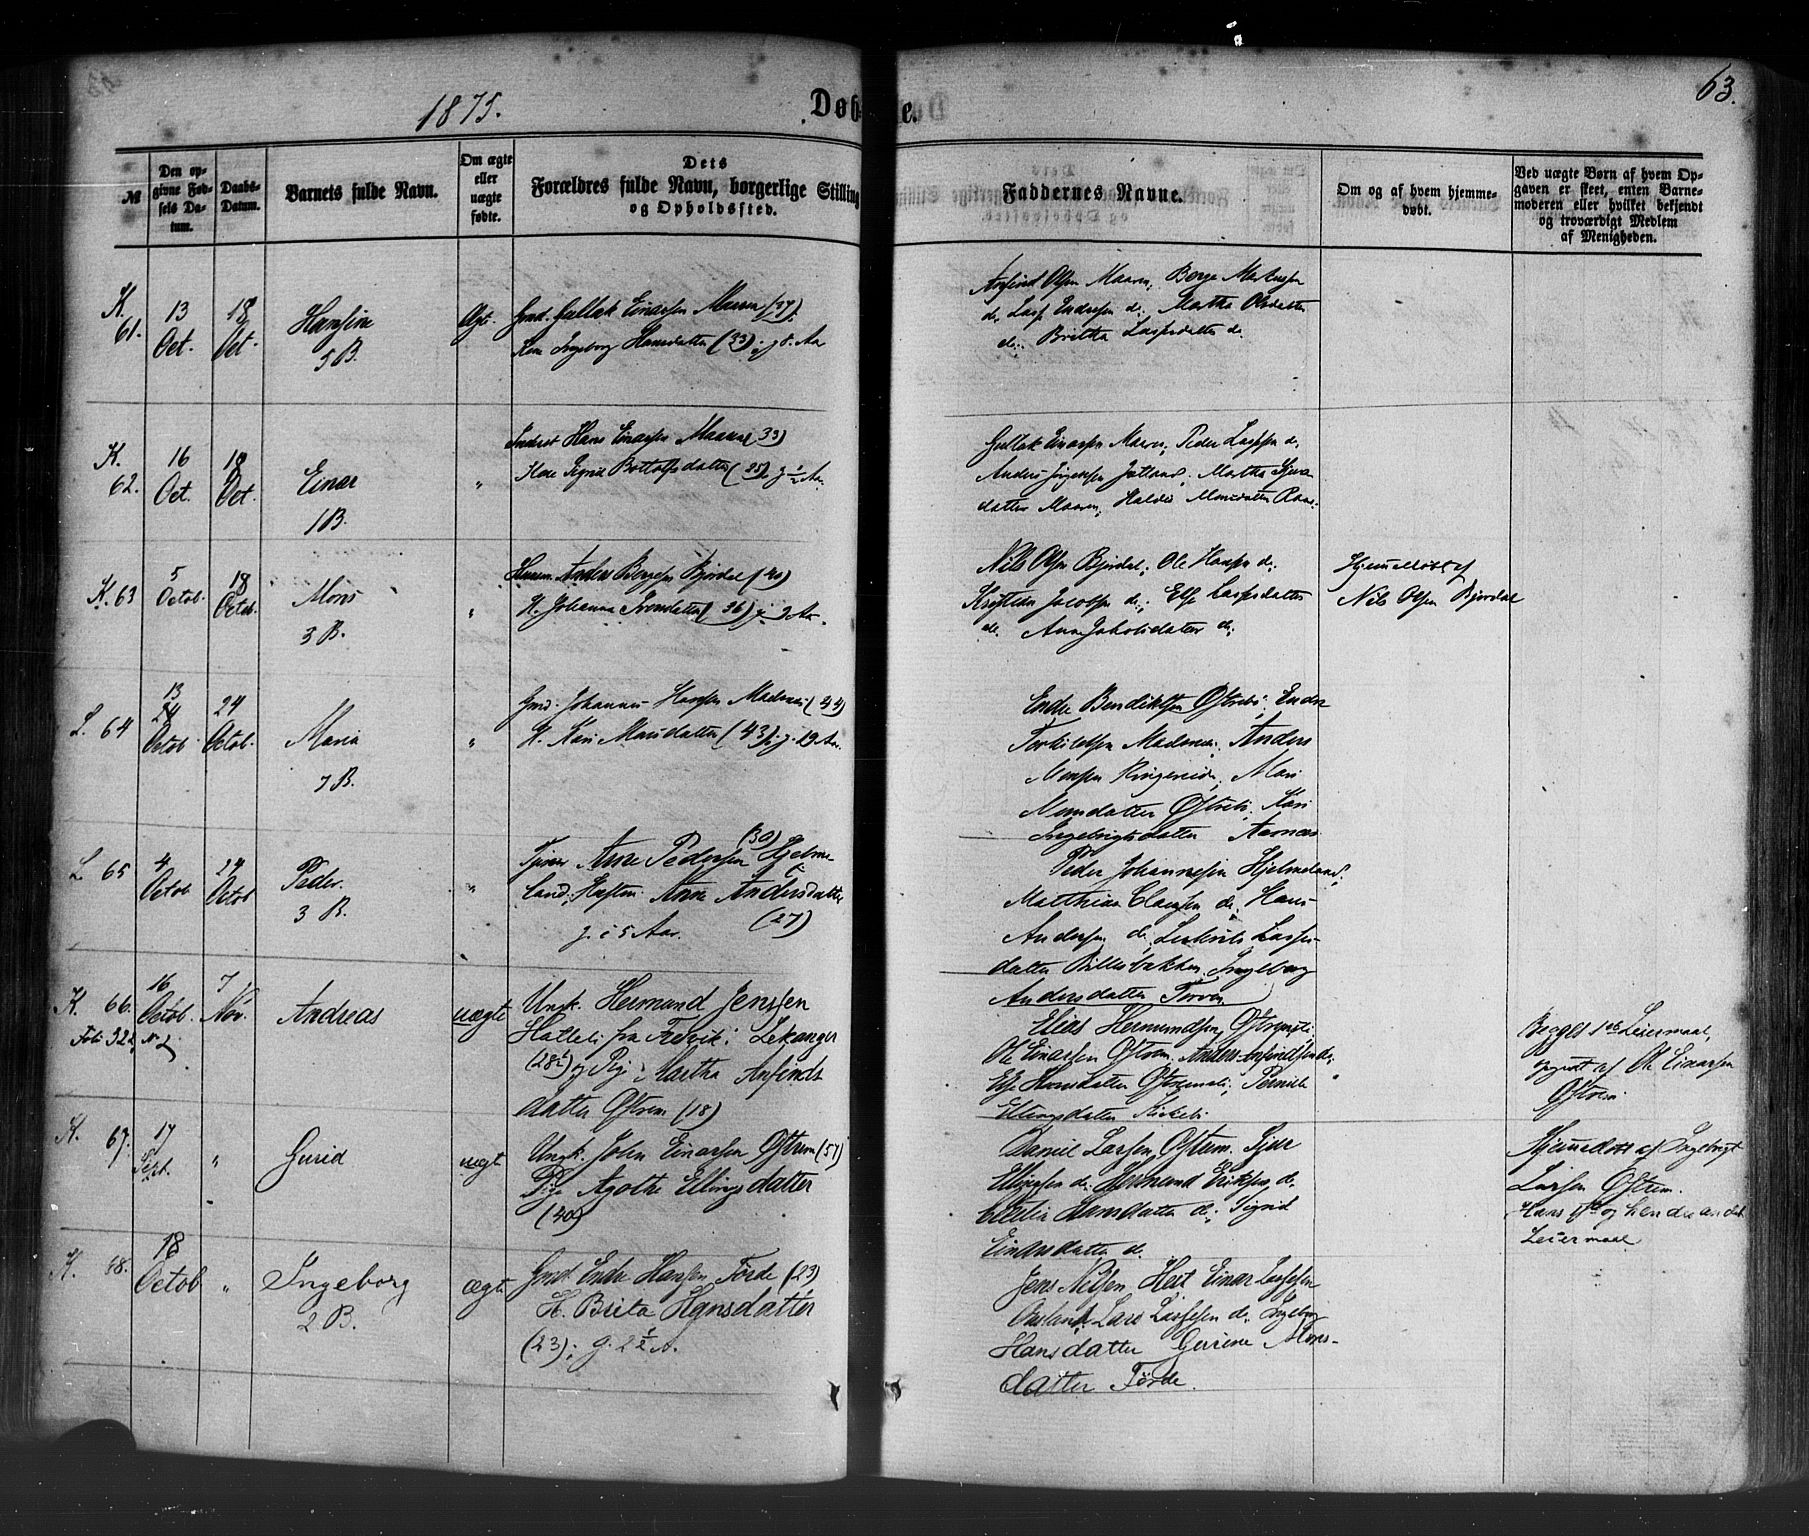 1875.
Døb
e.
63.
№
Den opgivne Fødsels Datum.
Daabs-Datum.
Barnets fulde Navn.
Om ægte eller uægte fødte.
Dets Forældres fulde Navn, borgerlige Stilling og Opholdssted.
Faddernes Navne.
Om og af hvem hjemmedøbt.
Ved uægte Børn af hvem Opgaven er skeet, enten Barnemoderen eller hvilket bekjendt og troværdigt Medlem af Menigheden.
K. 61.
13 Oct.
18 Oct.
Hansine
5 B.
Ægt.
Gmd. Gullak Einarsen Maaren (37).
Kone Ingeborg Hansdatter (33); g. 8. Aa
Anfind Olsen Maaren, Børge
d. Lasse Endresen d: Martha Olsdatter
d: Britha Lassesdatter d.
K. 62.
16 Oct.
18 Oct.
Einar
1 B.
"
Inderst Hans Einarsen Maaren (33)
Kone Sigrid Bottolfsdatter (25), g ½ Aa.
Gullak Einarsen Maaren, Peder Lassesen d.
Anders Jørgensen, Martha
datter Maaren,
K. 63
5 Octob.
18 Octob.
Mons
3 B.
"
Husm. Anders Børgesen Bjørdal (40)
K. Johanna Iversdatter (36) g. 2 Aa.
Nils Olsen Bjørdal, Ole Hansen d:
Kristen Jacobsen d:; Else Lassesdatter
d. Anna Jakobsdatter d:
Hjemmedøbt af
Nils Olsen Bjørdal
L. 64
13 Octob.
24 Octob.
Maria
7 B.
"
Gmd. Johannes Hansen Maderen (44)
K. Kari Monsdatter (43), g. 19 Aa.
Endre Bendiksen Østrebø, Endre
Torkildsen Maderen: Anders
Monsen Ringereide, Mari
Monsdatter Østrebø, Kari
Ingebrigtsdatter Aarnæs
L. 65
4 Octob
24 Octob
Peder.
3 B.
"
Tjener Arne Pedersen (30) Hjelme
land; Hustru Anna Andersdatter
g. i 5 Aar. (27)
Peder Johannesen Hjelmeland;
Matthias Clausen d:, Hans
Andersen d. Lasses-
datter Ingeborg
Andersdatter Torven
K. 66.
Fol: 322, № 2
16 Octob.
7 Nov.
Andreas
uægte
Ungk. Hermund Jensen
Hatleli fra Fresvik i Lekanger
(28½) og Pig. Martha Anfinds
datter Østrem (18)
Elias Hermundsen,
Ole Einarsen Østrem. Anders Anfindsen d:
Else Hansdatter Pernille
Ellingsdatter Kirkebø
Begges 1ste Leiermaal,
opgivet af Ole Einarsen
Østrem
K. 67.
17 Sept.
"
Gurid
uægt
Ungk. John Einarsen Østrem (57)
Pige Agathe Ellingsdatter
(40)
Daniel Larsen, Østrem. Sjur
Ellingsen d. Hermund Eriksen d.
Hansdatter d:; Sigrid
Einarsdatter d.
Hjemmedøbt af Ingebrigt
Larsen Østrem.
Hans 1ste og hendes andet
Leiermaal
K. 68.
18 Octob
"
Ingeborg
2 B.
ægte
Gmd. Endre Hansen, Førde (23)
K. Brita Hansdatter
(23); g. 2½ A.
Jens Nilsen, Einar Lassesen
Lars Lassesen d. Ingeborg
Hansdatter Mons-
datter Førde.